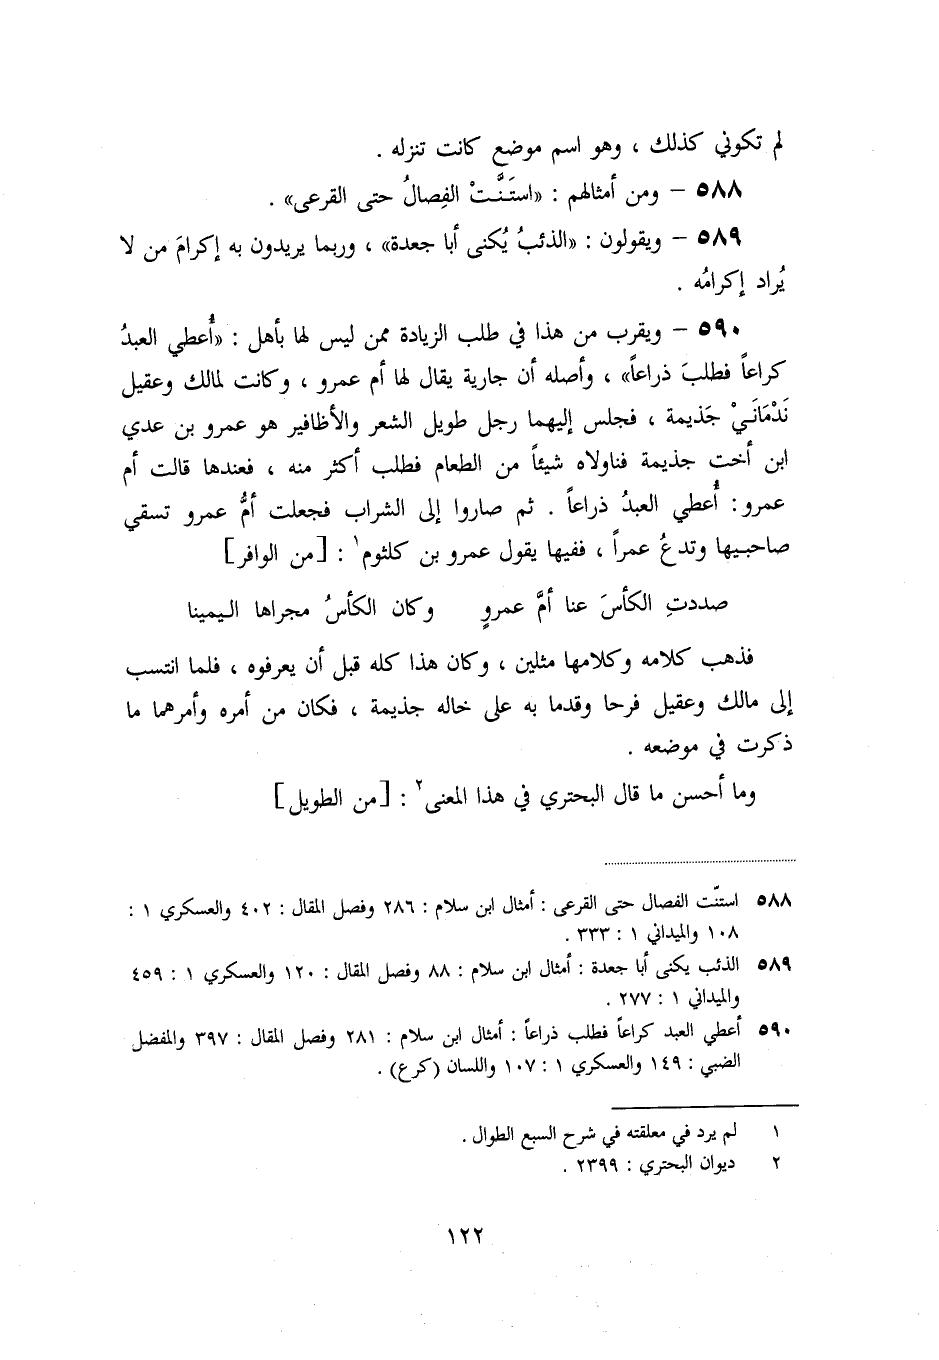 لم تكوني كذلك ، وهو اسم موضع كانت تنزله .
٥٨٨ – ومن أمثالهم : «استَنَّتْ الفِصالُ حتى القرعى» .
٥٨٩ – ويقولون : «الذئبُ يُكنى أبا جعدة» ، وربما يريدون به إكرامَ من لا
يُراد إكرامُه .
٥٩٠ – ويقرب من هذا في طلب الزيادة ممن ليس لها بأهل : «أُعطي العبدُ
كراعاً فطلبَ ذراعاً» ، وأصله أن جارية يقال لها أم عمرو ، وكانت لمالك وعقيل
نَدْمَانَيْ جَذيمة ، فجلس إليهما رجل طويل الشعر والأظافير هو عمرو بن عدي
ابن أخت جذيمة فناولاه شيئاً من الطعام فطلب أكثر منه ، فعندها قالت أم
عمرو : أُعطي العبدُ ذراعاً . ثم صاروا إلى الشراب فجعلت أمُّ عمرو تسقي
صاحبيها وتدعُ عمراً ، ففيها يقول عمرو بن كلثوم١ : [من الوافر]
صددتِ الكأسَ عنا أمَّ عمروٍ وكان الكأسُ مجراها اليمينا
فذهب كلامه وكلامها مثلين ، وكان هذا كله قبل أن يعرفوه ، فلما انتسب
إلى مالك وعقيل فرحا وقدما به على خاله جذيمة ، فكان من أمره وأمرهما ما
ذكرت في موضعه .
وما أحسن ما قال البحتري في هذا المعنى٢ : [من الطويل]
٥٨٨ استنّت الفصال حتى القرعى : أمثال ابن سلام : ٢٨٦ وفصل المقال : ٤٠٢ والعسكري ١ :
١٠٨ والميداني ١ : ٣٣٣ .
٥٨٩ الذئب يكنى أبا جعدة : أمثال ابن سلام : ٨٨ وفصل المقال : ١٢٠ والعسكري ١ : ٤٥٩
والميداني ١ : ٢٧٧ .
٥٩٠ أعطي العبد كراعاً فطلب ذراعاً : أمثال ابن سلام : ٢٨١ وفصل المقال : ٣٩٧ والمفضل
الضبي : ١٤٩ والعسكري ١ : ١٠٧ واللسان (كرع) .
١ لم يرد في معلقته في شرح السبع الطوال .
٢ ديوان البحتري : ٢٣٩٩ .
١٢٢